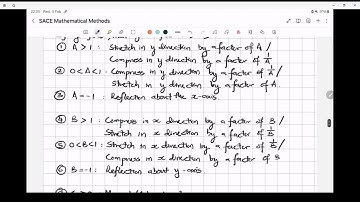 22:00 Wed 5 Feb
SACE Mathematical Methods
① A > 1 : Stretch in y direction by a factor of A /
Compress in y direction by a factor of 1/A
② 0 < A < 1 : Compress in y direction by a factor of 1/A /
Stretch in y direction by a factor of A.
③ A = -1 : Reflection about the x-axis.
④ B > 1 : Compress in x direction by a factor of B /
Stretch in x direction by a factor of 1/B
⑤ 0<B<1 : Stretch in x direction by a factor of 1/B /
Compress in x direction by a factor of B
⑥ B = -1 : Reflection about y-axis.